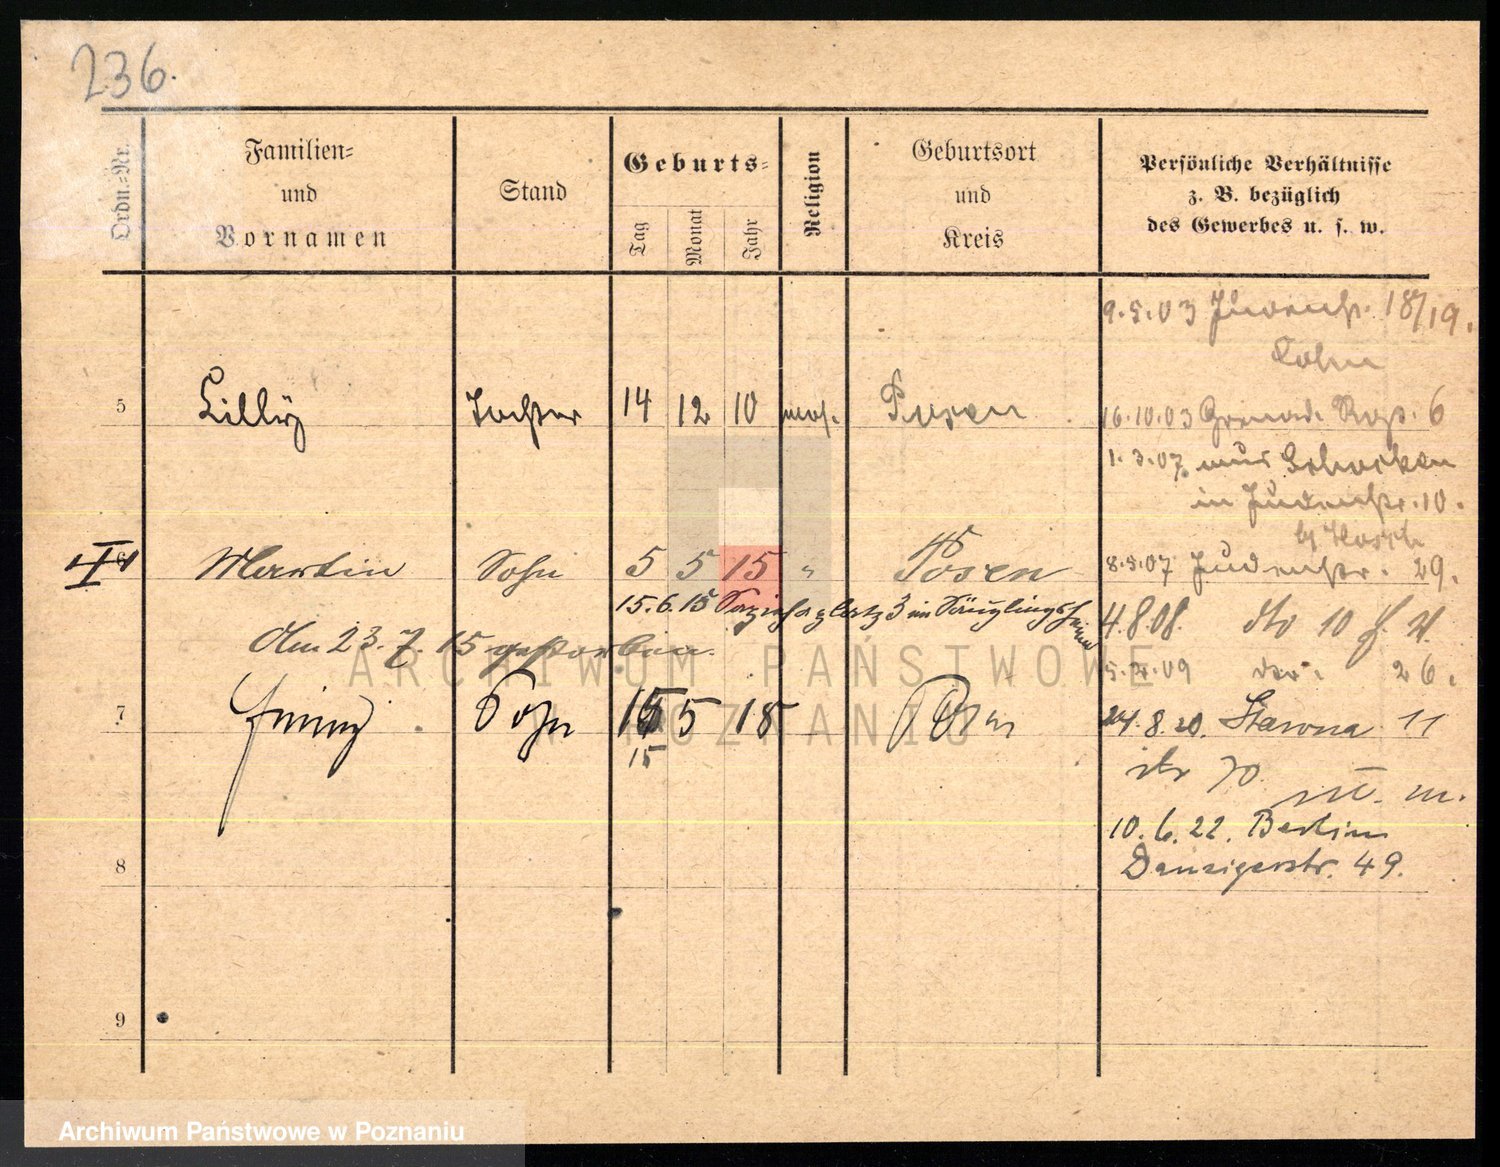 236.
Ordn.-Nr.
Familien-
und
Vornamen
Stand
Geburts-
Tag
Monat
Jahr
Religion
Geburtsort
und
Kreis
Persönliche Verhältnisse
z. B. bezüglich
des Gewerbes u. s. w.
9.5.03 Judenstr. 18/19.
Cohn
5 Lilly Tochter 14 12 10 mos. Posen
16.10.03 Grenad. 6
1.3.07.
in Judenstr. 10.
6 Martin Sohn 5 5 15 " Posen
8.3.07 Judenstr. 29.
15.6.15 3 im Säuglingsheim
4.8.08. dto 10
Am 23.7.15 gestorben.
09 26.
7 Sohn 15 5 18 Posen
15
24.8.20. 11
10.6.22. Berlin
Danzigerstr. 49.
8
9
ARCHIWUM PAŃSTWOWE
W POZNANIU
Archiwum Państwowe w Poznaniu